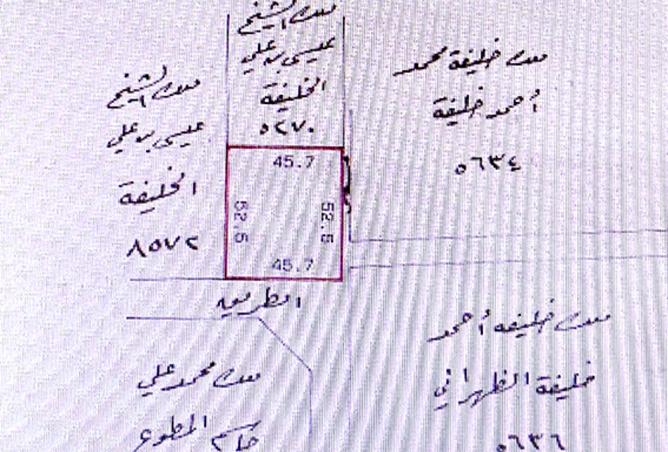 ملك الشيخ
عيسى بن علي
الخليفة
٥٢٧٠
ملك خليفة محمد
أحمد خليفة
٥٦٣٤
ملك الشيخ
عيسى بن علي
الخليفة
٨٥٧٢
45.7
52.5
52.5
45.7
الطريق
ملك خليفه أحمد
خليفة الظهراني
٥٦٣٦
ملك محمد علي
جاسم المطوع